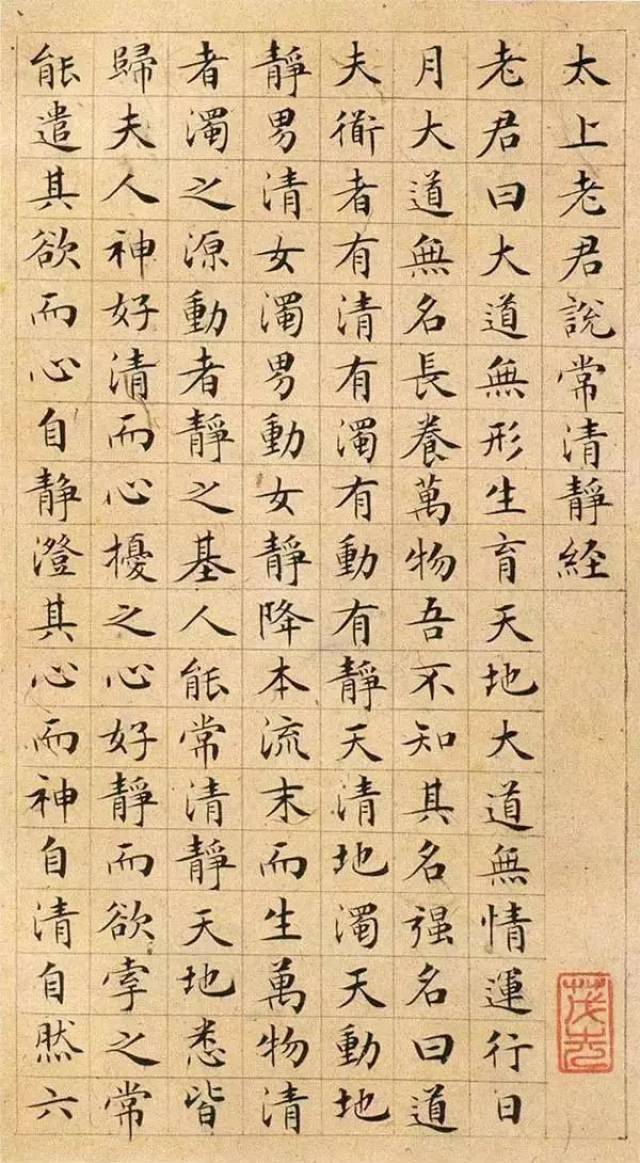 太上老君說常清靜経
老君曰大道無形生育天地大道無情運行日
月大道無名長養萬物吾不知其名强名曰道
夫衜者有清有濁有動有靜天清地濁天動地
靜男清女濁男動女靜降本流末而生萬物清
者濁之源動者靜之基人能常清靜天地悉皆
歸夫人神好清而心擾之心好靜而欲牽之常
能遣其欲而心自静澄其心而神自清自然六